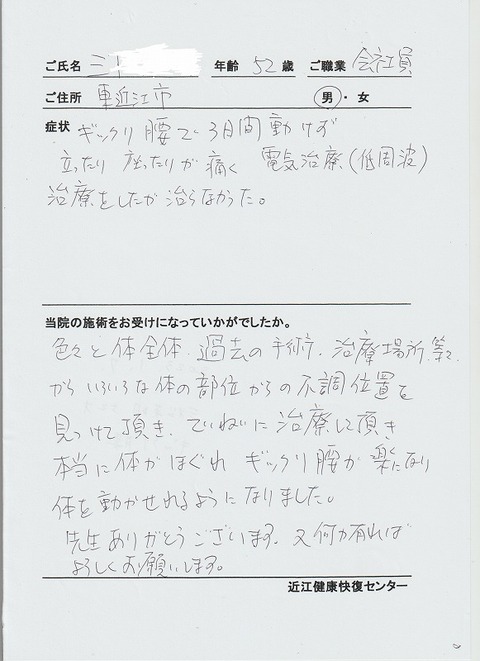 ご氏名 三 年齢 52 歳 ご職業 会社員
ご住所 東近江市 男・女
症状 ギックリ腰で3日間動けず
立ったり座ったりが痛く 電気治療(低周波)
治療をしたが治らなかった。
当院の施術をお受けになっていかがでしたか。
色々と体全体、過去の手術、治療場所、等々
からいろいろな体の部位からの不調位置を
見つけて頂き、ていねいに治療して頂き
本当に体がほぐれ ギックリ腰が楽になり
体を動かせれるようになりました。
先生ありがとうございます。又何か有れば
よろしくお願いします。
近江健康快復センター